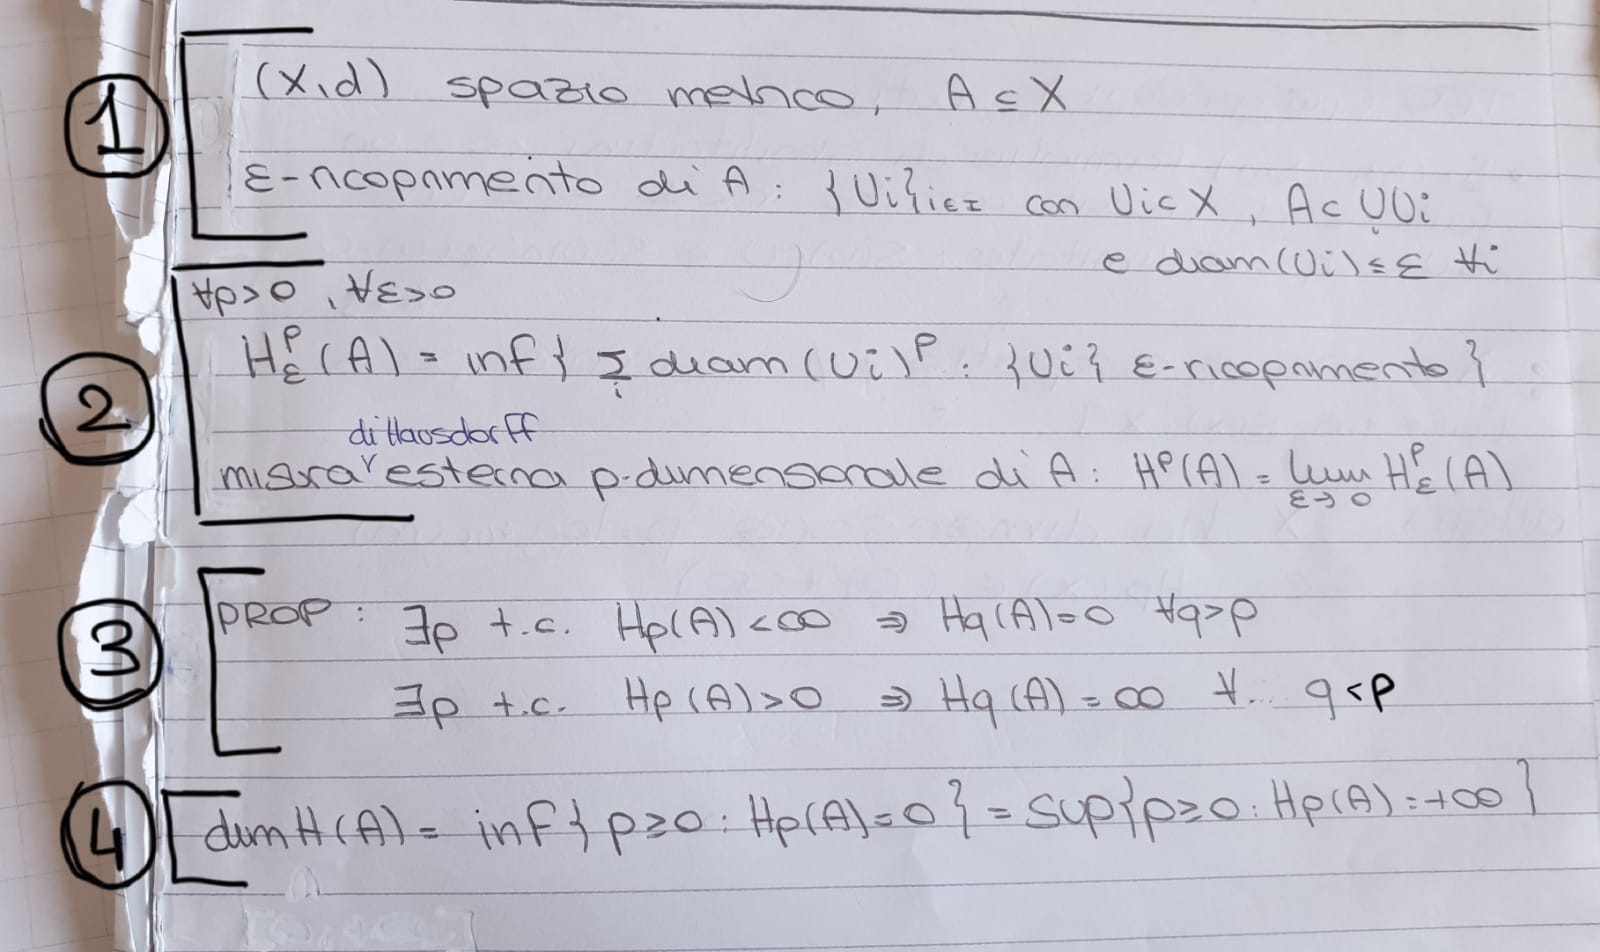 1
(X,d) spazio metrico, A ⊆ X
ε-ricoprimento di A: {Ui}i∈I con Ui⊂X, A⊂∪Ui
i
e diam(Ui)≤ε ∀i
2
∀p>0, ∀ε>0
H^p_ε(A) = inf{ Σ_i diam(Ui)^p : {Ui} ε-ricoprimento}
di Hausdorff
misura esterna p-dimensionale di A: H^p(A) = lim_{ε→0} H^p_ε(A)
3
PROP: ∃p t.c. Hp(A)<∞ ⇒ Hq(A)=0 ∀q>p
∃p t.c. Hp(A)>0 ⇒ Hq(A)=∞ ∀... q<p
4
dimH(A) = inf{p≥0: Hp(A)=0} = sup{p≥0: Hp(A)=+∞}